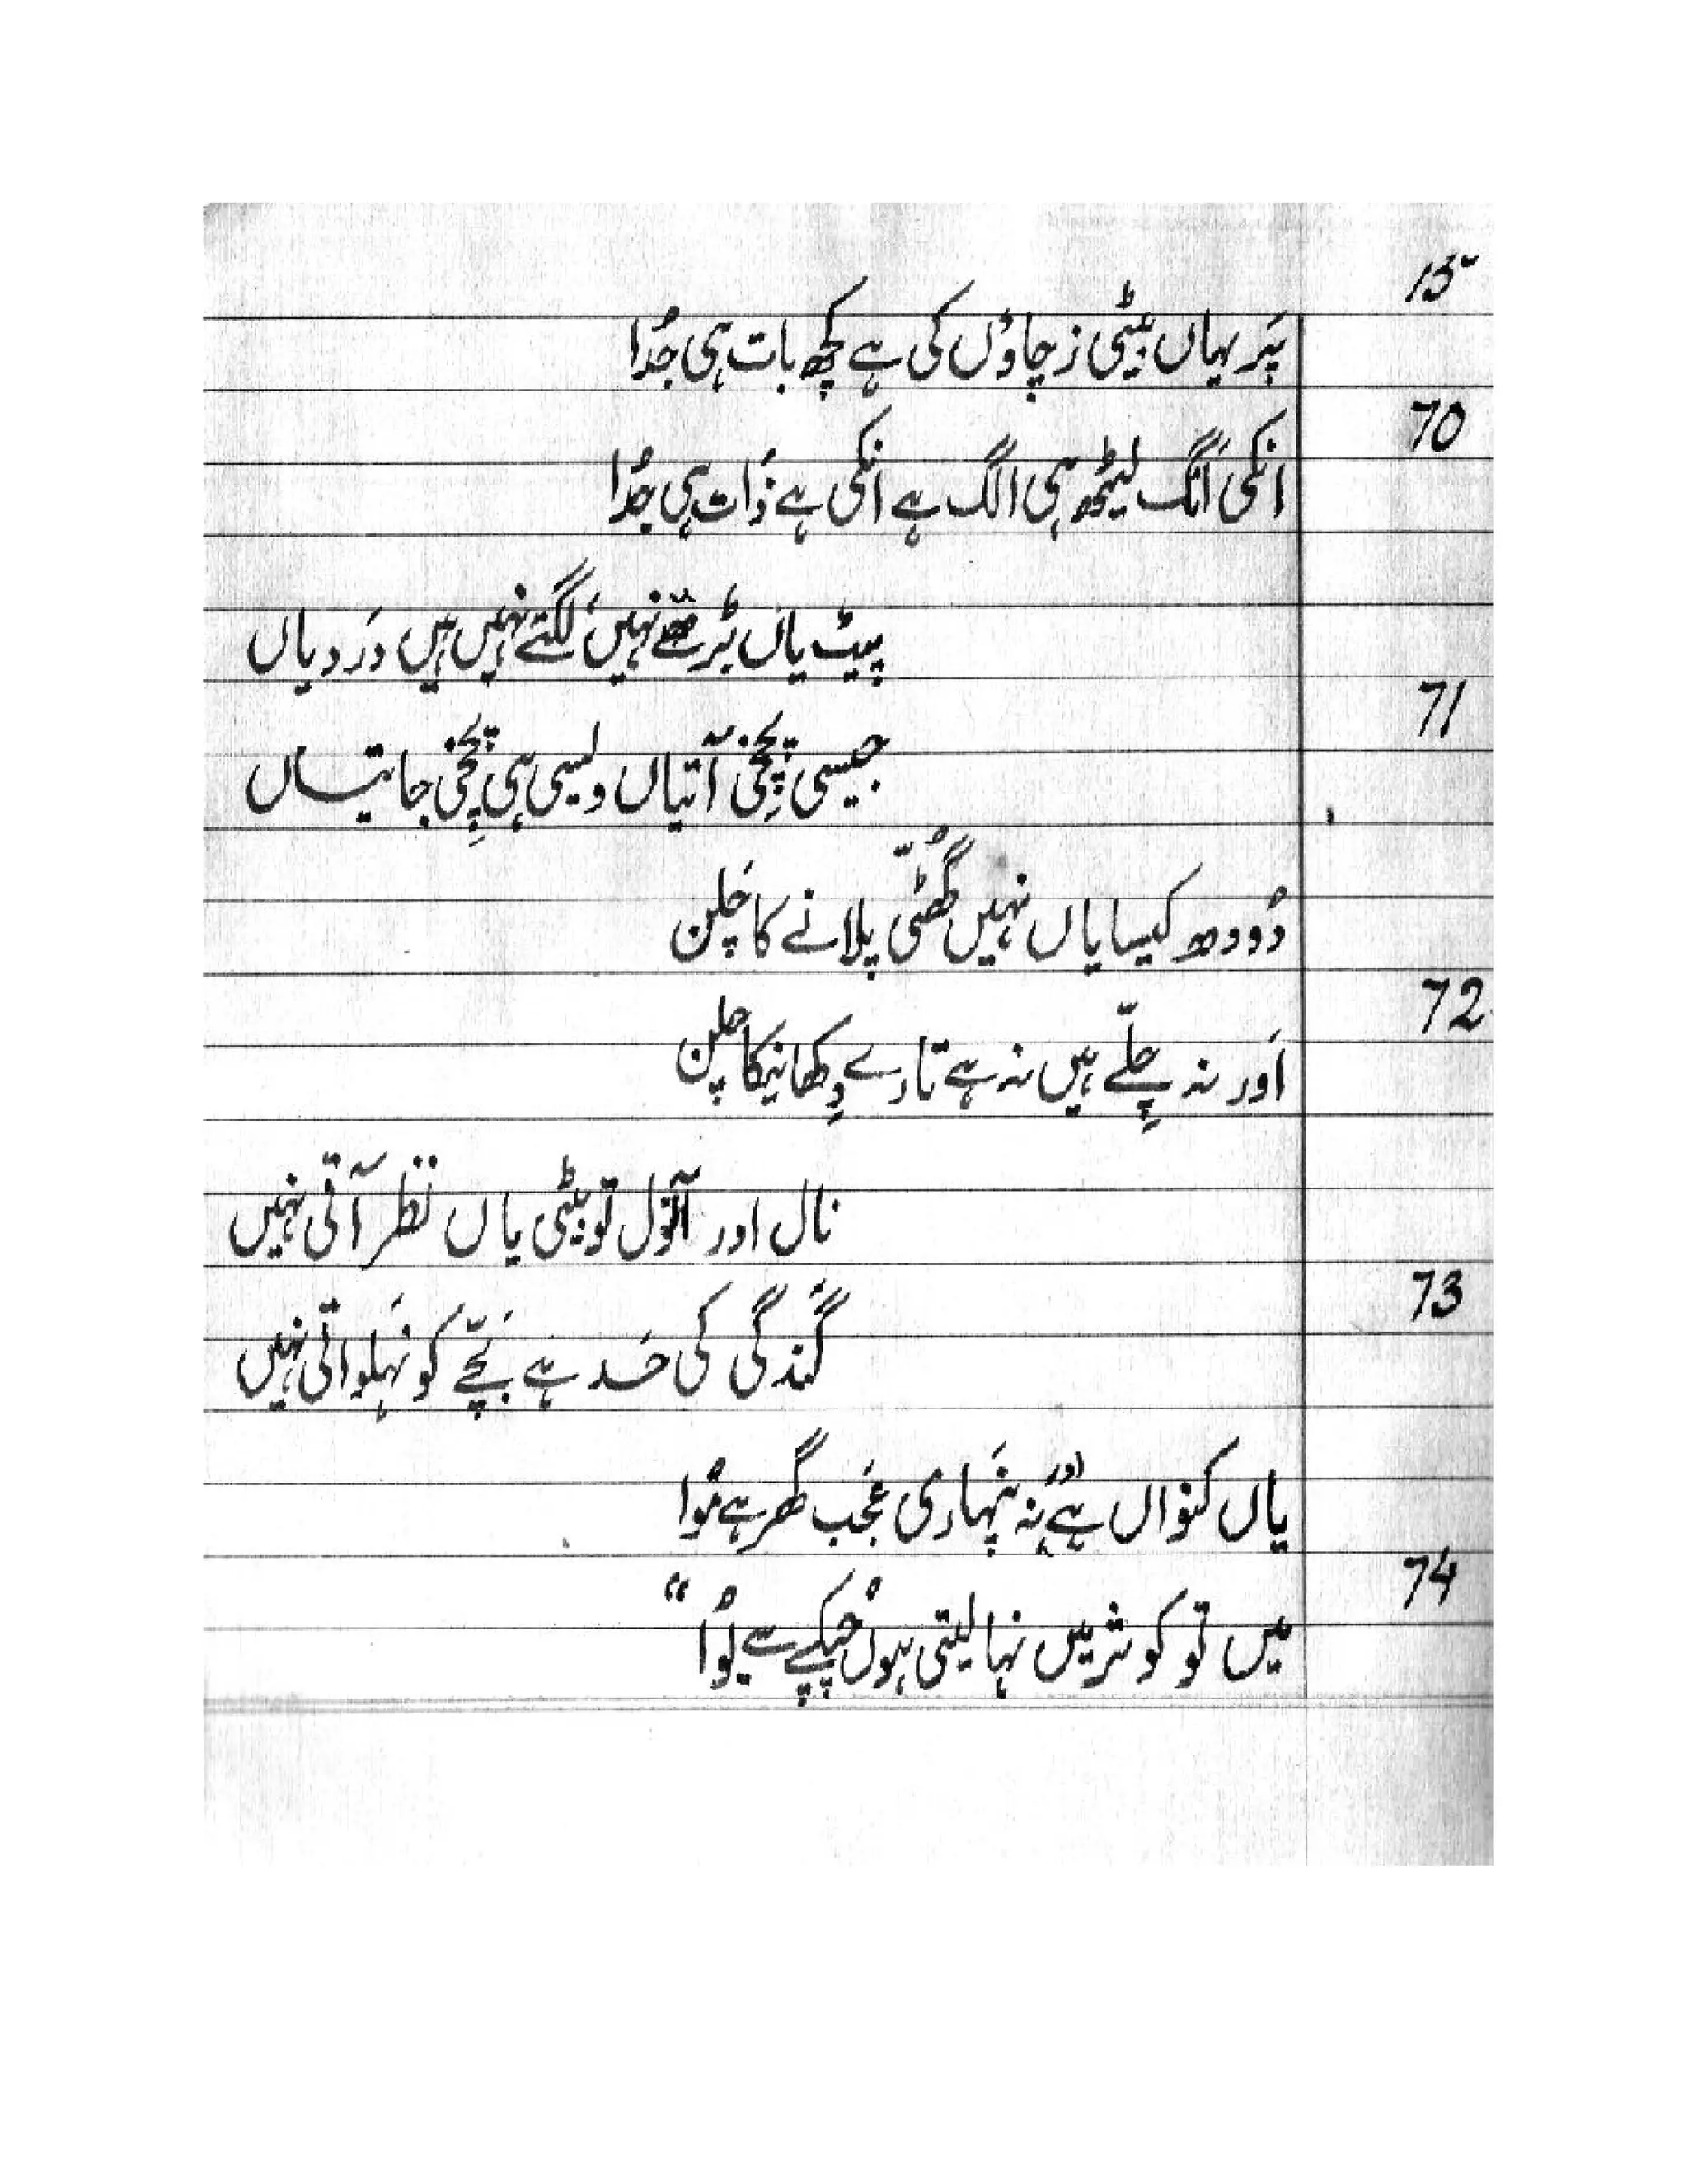 15
پَر یہاں بیٹی زچاؤں کی ہے کچھ بات ہی جُدا
70
انکی اَنگ لیٹھ ہی الگ ہے انکی ہے ذات ہی جُدا
پیٹ یاں بڑھتے نہیں، لگتے نہیں ہیں دَرد یاں
71
جیسی آتیاں ویسی ہی جاتیاں
دُوودھ کیسا یاں نہیں گھُٹّی پلانے کا چَلن
72
اَور نہ چِلّے ہیں نہ ہے تارے دِکھانیکا چلن
نال اور آنول تو بیٹی یاں نظر آتی نہیں
73
گَندگی کی حَد ہے بَچّے کو نَہلواتی نہیں
یاں کنواں ہے اور نہ پَنہاری عَجب گھر ہے مُوا
74
میں تو کوثر میں نہا لیتی ہوں چُپکے سے بُوا“